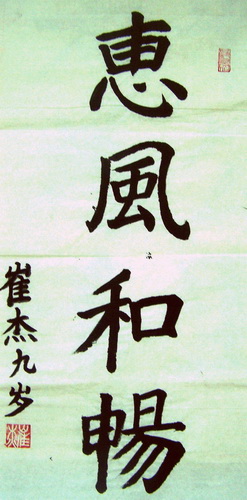 惠風和暢
崔杰九岁